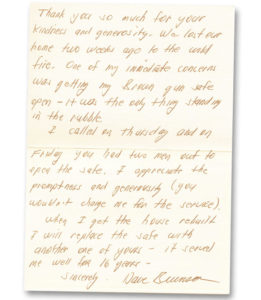 Thank you so much for your
kindness and generosity. We lost our
home two weeks ago to the wild
fire. One of my immediate concerns
was getting my Brown gun safe
open - it was the only thing standing
in the rubble.
I called on Thursday and on
Friday you had two men out to
open the safe. I appreciate the
promptness and generosity (you
wouldn't charge me for the service).
When I get the house rebuilt
I will replace the safe with
another one of yours - it served
me well for 16 years -
Sincerely, Dave